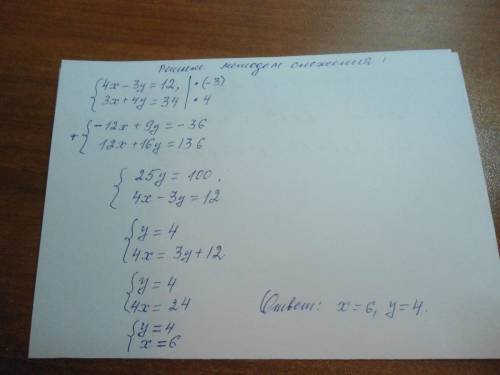 Решение методом сложения:
{4x - 3y = 12, | · (-3)
{3x + 4y = 34 | · 4
+ {-12x + 9y = -36
{12x + 16y = 136
{25y = 100,
{4x - 3y = 12
{y = 4
{4x = 3y + 12
{y = 4
{4x = 24
{y = 4
{x = 6
Ответ: x = 6, y = 4.